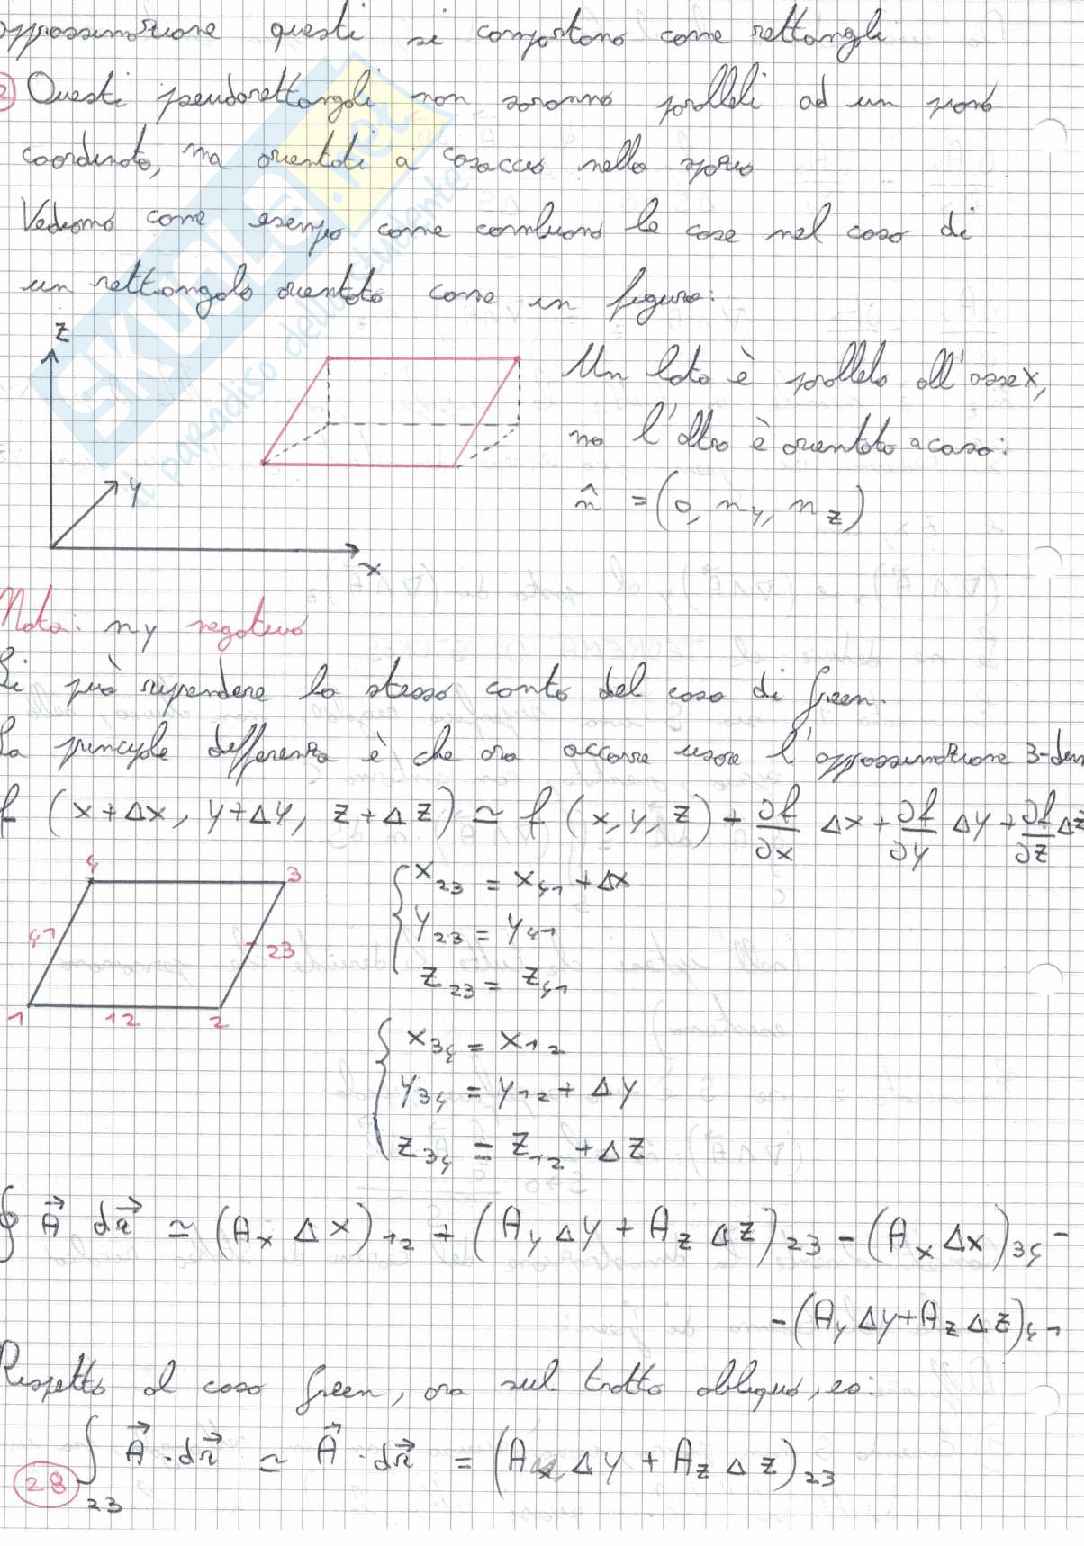 approssimazione questi si comportano come rettangoli
2) Questi pseudorettangoli non saranno paralleli ad un piano
coordinato, ma orientati a casaccio nello spazio
Vediamo come esempio come cambiano le cose nel caso di
un rettangolo orientato come in figura:
z
y
x
Un lato è parallelo all'asse x,
ma l'altro è orientato a caso:
n̂ = (0, ny, nz)
Nota: ny negativo
Si può riprendere lo stesso conto del caso di Green.
La principale differenza è che ora occorre usare l'approssimazione 3-dim
f (x+Δx, y+Δy, z+Δz) ≃ f (x, y, z) + ∂f/∂x Δx + ∂f/∂y Δy + ∂f/∂z Δz
4 3
41 23
1 12 2
x23 = x41 + Δx
y23 = y41
z23 = z41
x34 = x12
y34 = y12 + Δy
z34 = z12 + Δz
∮ A⃗ dr⃗ ≃ (Ax Δx)12 + (Ay Δy + Az Δz)23 - (Ax Δx)34 -
- (Ay Δy + Az Δz)41
Rispetto al caso Green, ora sul tratto obliquo, es:
∫23 A⃗ · dr⃗ ≃ A⃗ · dr⃗ = (A Δy + Az Δz)23
28
SKUOLA.net
il paradiso dello studente